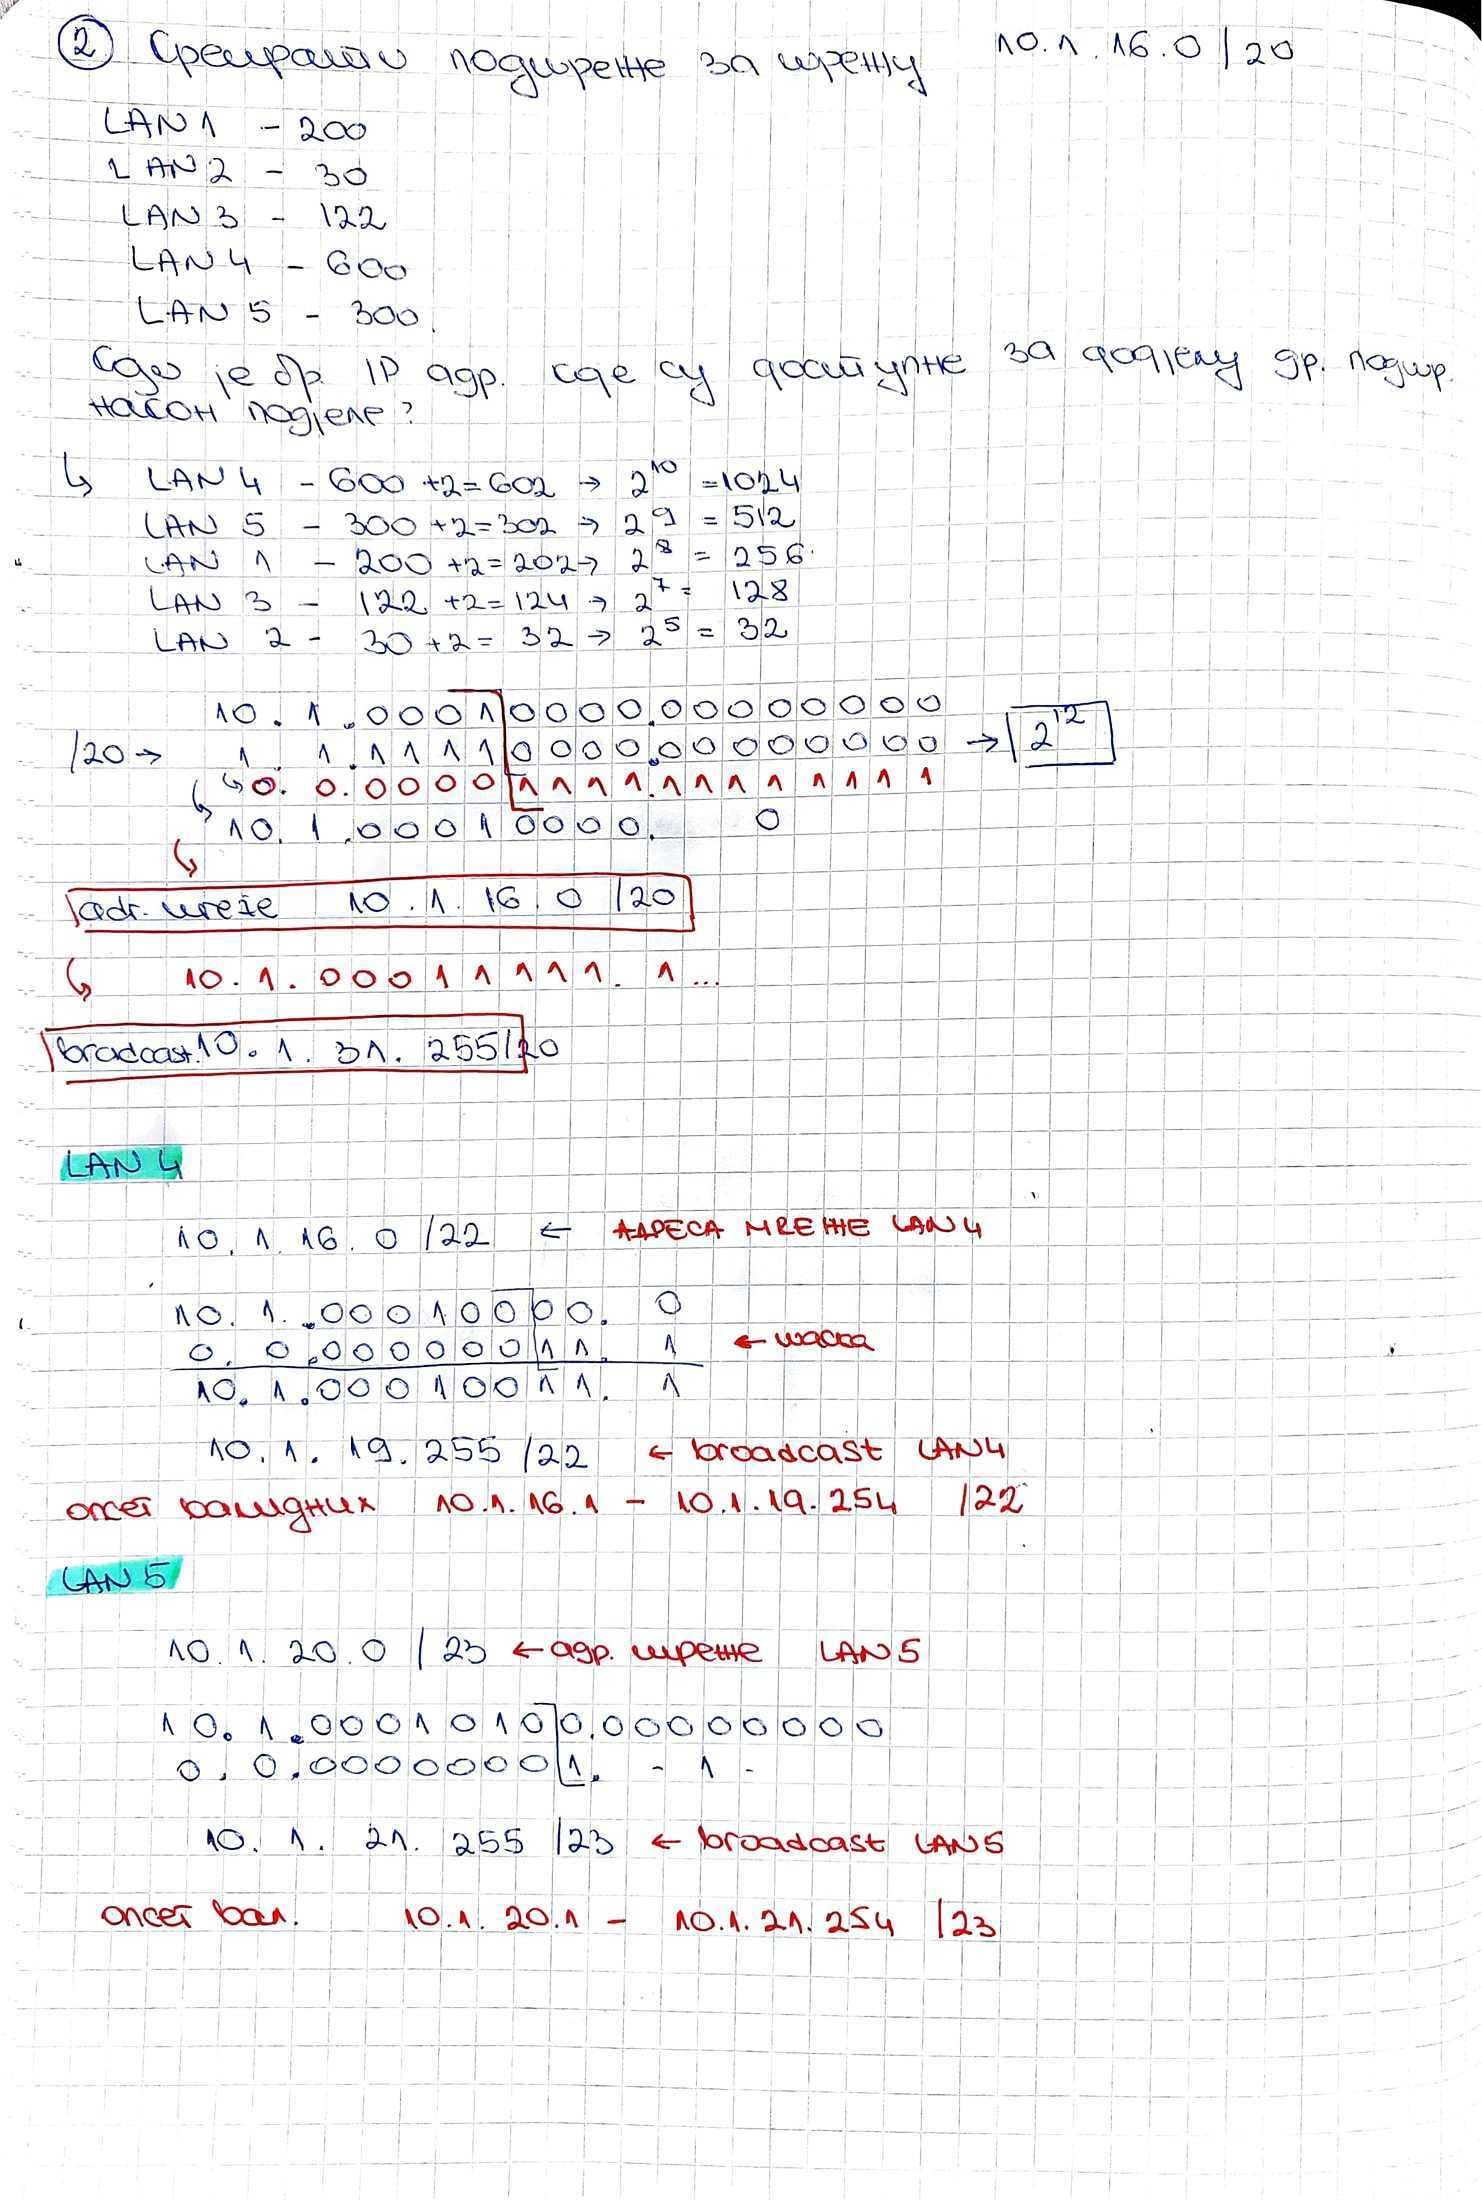 ② Креирати подмреже за мрежу 10.1.16.0/20
LAN 1 - 200
LAN 2 - 30
LAN 3 - 122
LAN 4 - 600
LAN 5 - 300.
је бр. IP адр. које су доступне за додјелу др. подмр.
након подјеле?
↳ LAN 4 - 600 +2=602 → 2^10 =1024
LAN 5 - 300 +2=302 → 2^9 = 512
LAN 1 - 200 +2=202→ 2^8 = 256
LAN 3 - 122 +2=124 → 2^7 = 128
LAN 2 - 30 +2= 32 → 2^5 = 32
10.1.00010000.00000000
/20→ 1.1.11110000.00000000 → 2^12
↳ 0.0.00001111.11111111
↳ 10.1.00010000. 0
↳
adr. mreže 10.1.16.0 /20
↳ 10.1.00011111.1...
bradcast.10.1.31.255/20
LAN 4
10.1.16.0 /22 ← АДРЕСА МРЕЖЕ LAN 4
10.1.00010000. 0
0.0.00000011. 1 ← маска
10.1.00010011. 1
10.1.19.255 /22 ← broadcast LAN4
опсег валидних 10.1.16.1 - 10.1.19.254 /22
LAN 5
10.1.20.0 /23 ← адр. мреже LAN 5
10.1.00010100.00000000
0.0.00000001. - 1 -
10.1.21.255 /23 ← broadcast LAN5
опсег вал. 10.1.20.1 - 10.1.21.254 /23